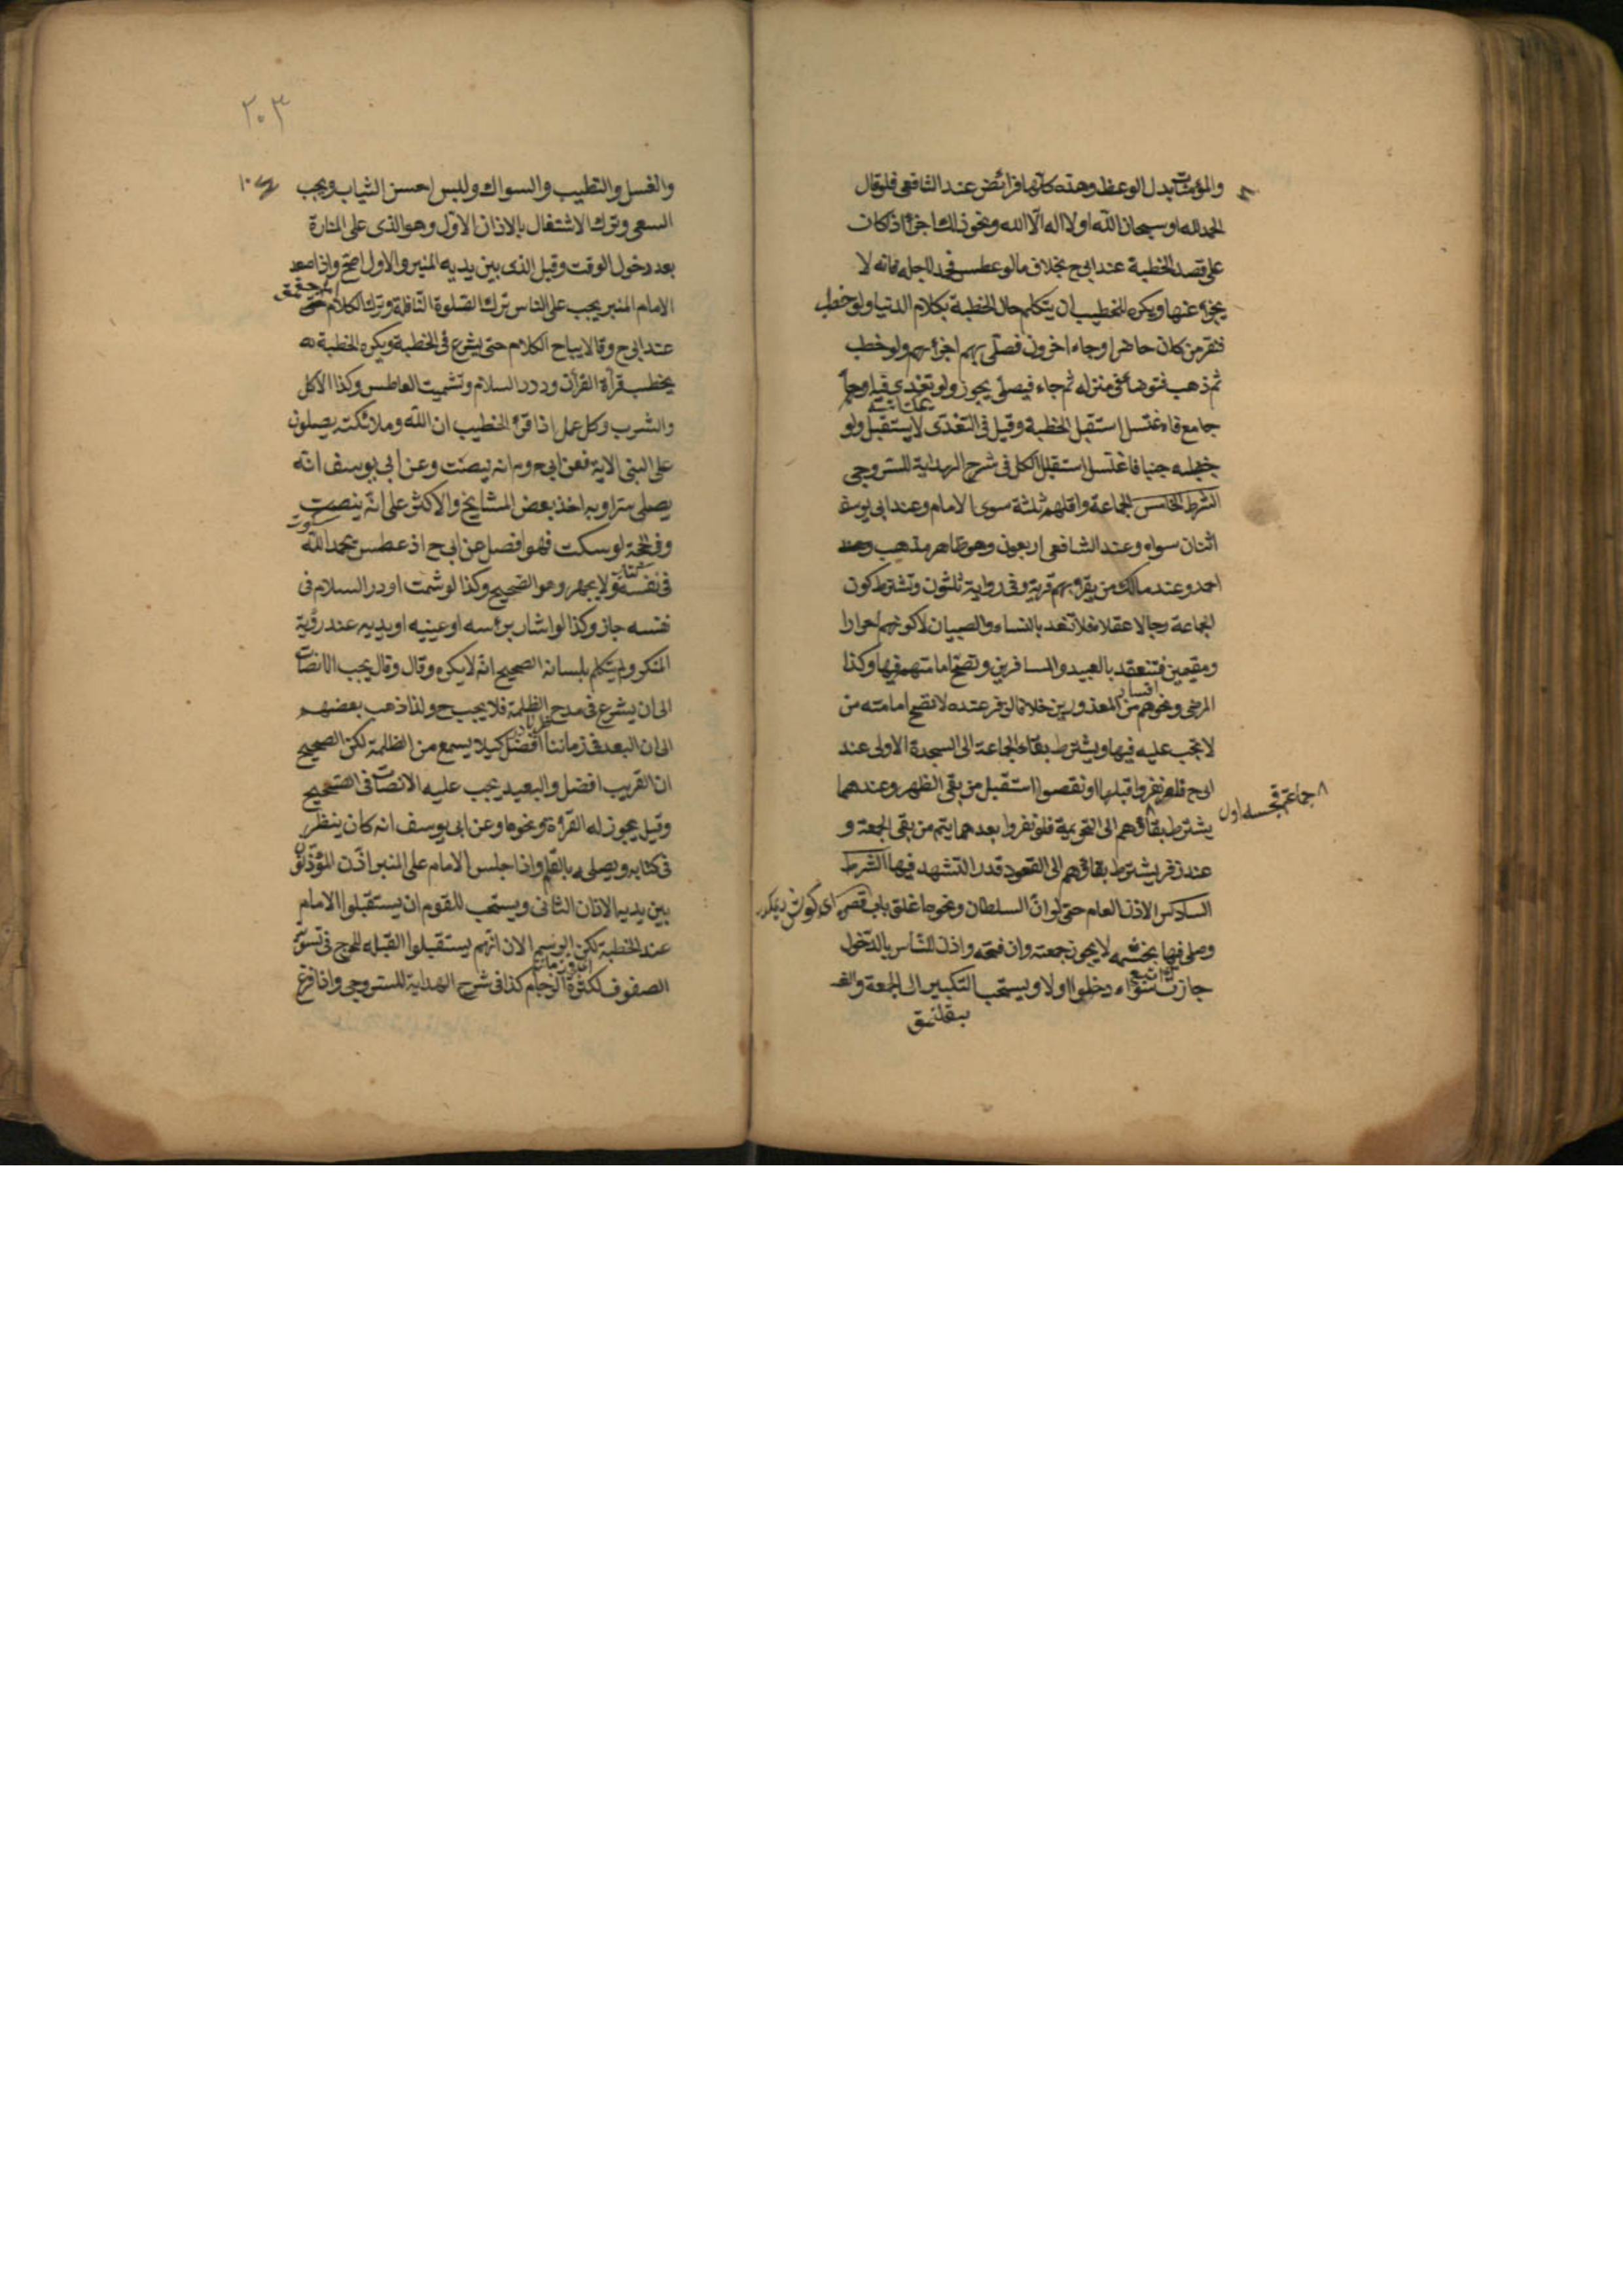 والمؤمنات بدل الوعظ وهذه كلها فرائض عند الشافعي فلو قال
الحمد لله او سبحان الله او لا اله الا الله ونحو ذلك اجزأ اذا كان
على قصد الخطبة عند ابي ح بخلاف ما لو عطس فحمد لاجله فانه لا
يجزئ عنها ويكره للخطيب ان يتكلم حال الخطبة بكلام الدنيا ولو خطب
فنفر من كان حاضرا وجاء اخرون فصلى بهم اجزأهم ولو خطب
ثم ذهب فتوضأ في منزله ثم جاء فيصلى يجوز ولو تغدى فيه او
جامع فاغتسل استقبل الخطبة وقيل في التغدى لا يستقبل ولو
خطب جنبا فاغتسل استقبل الكل في شرح الهداية للسروجي
الشرط الخامس الجماعة واقلهم ثلثة سوى الامام وعند ابي يوسف
اثنان سواه وعند الشافعي اربعون وهو ظاهر مذهب
احمد وعند مالك من يقر بهم قرية وفي رواية ثلثون وتشترط كون
الجماعة رجالا عقلاء فلا تنعقد بالنساء والصبيان لا كونهم احرارا
ومقيمين فتنعقد بالعبيد والمسافرين وتصح امامتهم فيها وكذا
المرضى ونحوهم من المعذورين خلافا لزفر عنده لا تصح امامته من
لا تجب عليه فيها ويشترط بقاء الجماعة الى السجدة الاولى عند
ابي ح فلو نفروا قبلها او نقصوا استقبل من بقى الظهر وعندهما
٨ جماعتم اول
يشترط بقاؤهم الى التحريمة فلو نفروا بعدهما يتم من بقى الجمعة و
عند زفر يشترط بقاؤهم الى القعود قدر التشهد فيها الشرط
السادس الاذن العام حتى لو ان السلطان ونحوه اغلق باب قصر
وصلى فيها بحشمه لا يجوز جمعته وان فتحه واذن للناس بالدخول
جازت سواء دخلوا اولا ويستحب التكبير الى الجمعة
والغسل والتطيب والسواك ولبس احسن الثياب ويجب
٢٠٣
السعى وترك الاشتغال بالاذان الاول وهو الذى على المنارة
بعد دخول الوقت وقيل الذى بين يديه المنبر والاول اصح واذا صعد
الامام المنبر يجب على الناس ترك الصلوة النافلة وترك الكلام
عند ابي ح وقالا يباح الكلام حتى يشرع في الخطبة ويكره الخطبة
يخطب قرأة القرأن ورد السلام وتشميت العاطس وكذا الاكل
والشرب وكل عمل اذا قرأ الخطيب ان الله وملائكته يصلون
على النبى الاية فعن ابي ح وم انه ينصت وعن ابي يوسف انه
يصلى سرا وبه اخذ بعض المشايخ والاكثر على انه ينصت
وفي الحجة لو سكت فهو افضل عن ابي ح اذ عطس يحمد الله
في نفسه ولا يجهر وهو الصحيح وكذا لو شمت او رد السلام في
نفسه جاز وكذا لو اشار برأسه او عينيه او يديه عند رؤية
المنكر ولم يتكلم بلسانه الصحيح انه لا يكره وقال وقال يجب الانصات
الى ان يشرع في مدح الظلمة فلا يجب ح ولذا ذهب بعضهم
الى ان البعد في زماننا افضل كيلا يسمع من الظلمة لكن الصحيح
ان القريب افضل والبعيد يجب عليه الانصات في الصحيح
وقيل يجوز له القرأة ونحوها وعن ابي يوسف انه كان ينظر
في كتابه ويصلى بالقلم واذا جلس الامام على المنبر اذن المؤذنون
بين يديه الاذان الثانى ويستحب للقوم ان يستقبلوا الامام
عند الخطبة لكن الرسم الان انهم يستقبلوا القبلة للحرج في تسوية
الصفوف لكثرة الزحام كذا في شرح الهداية للسروجي واذا فرغ